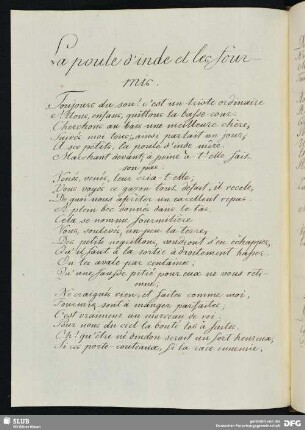 La poule d'inde et les four-
mis.
Toujours du son! c'est un triste ordinaire
Allons, enfans, quittons la basse cour.
Cherchons au bois une meilleure chère,
Suivés moi tous; ainsi parlait un jour,
A ses petits, la poule d'inde mère.
Marchant devant; à peine a t'elle fait
son pas.
Venés, venés, leur cria-t-elle;
Vous voyés ce gazon tout défait, il recele,
De quoi nous apreter un excellent repas
A plein bec donnés dans le tas
Cela se nomme fourmiliere
Vous, soulevés, un peu la terre,
Des petits negrillons, voudront s'en échapper,
Qu'il faut à la sortie adroitement haper.
On les avale par centaine;
Qu'une fausse pitié pour eux ne vous reti-
enne;
Ne craignés rien, et faites comme moi,
Fourmis sont à manger parfaites,
C'est vraiment un morceau de roi;
Pour nous du ciel la bonté les a faites,
Oh! qu'être né dindon serait un sort heureux,
Si ces porte-couteaux, si la race ennemie,
SLUB
Wir führen Wissen.
gefördert von der
Deutschen Forschungsgemeinschaft
DFG